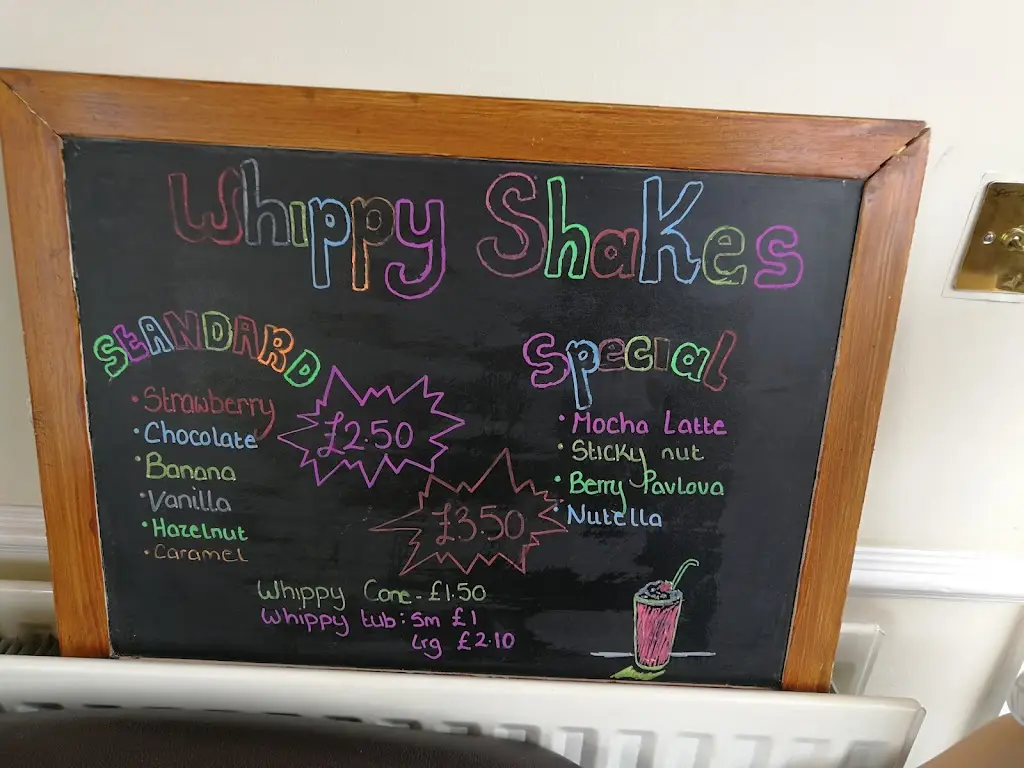 Whippy Shakes
SEANDARD
• Strawberry
• Chocolate
• Banana
• Vanilla
• Hazelnut
• Caramel
£2.50
Special
• Mocha Latte
• Sticky nut
• Berry Pavlova
• Nutella
£3.50
Whippy Cone - £1.50
Whippy tub: Sm £1
Lrg £2.10